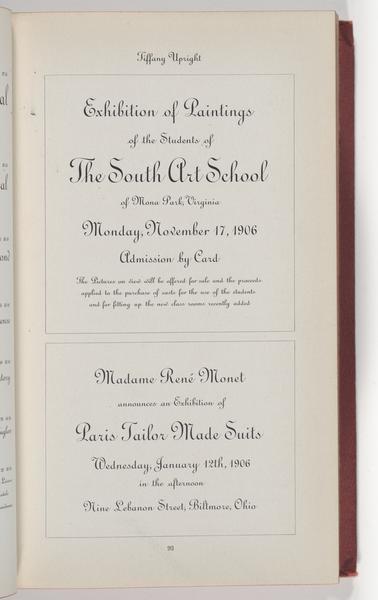 Tiffany Upright
Exhibition of Paintings
of the Students of
The South Art School
of Mona Park, Virginia
Monday, November 17, 1906
Admission by Card
The Pictures on view will be offered for sale and the proceeds
applied to the purchase of casts for the use of the students
and for fitting up the new class rooms recently added
Madame René Monet
announces an Exhibition of
Paris Tailor Made Suits
Wednesday, January 12th, 1906
in the afternoon
Nine Lebanon Street, Biltmore, Ohio